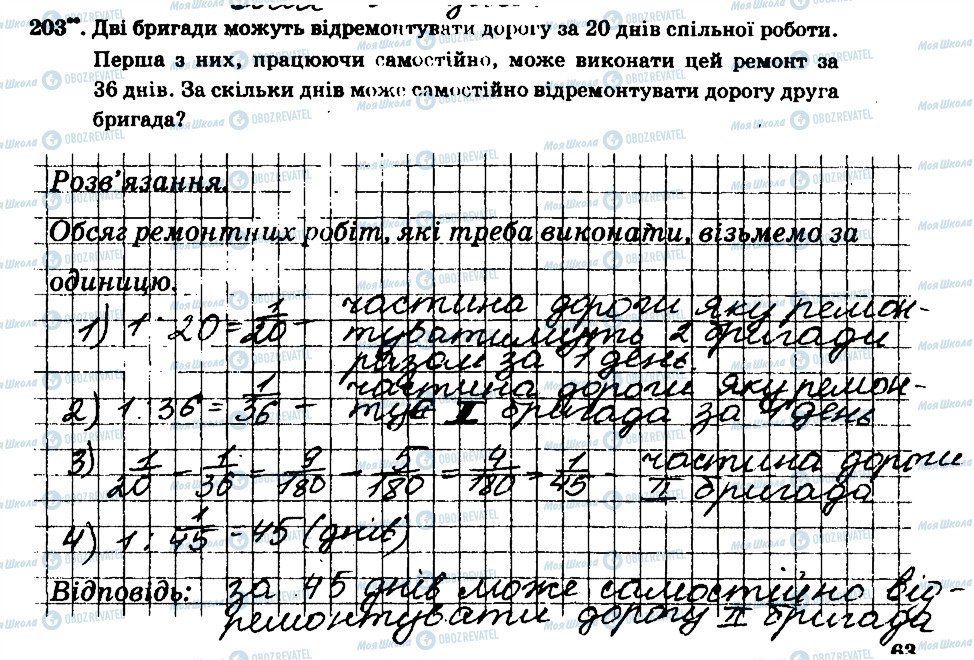 203**. Дві бригади можуть відремонтувати дорогу за 20 днів спільної роботи.
Перша з них, працюючи самостійно, може виконати цей ремонт за
36 днів. За скільки днів може самостійно відремонтувати дорогу друга
бригада?
Розв'язання.
Обсяг ремонтних робіт, які треба виконати, візьмемо за
одиницю.
1) 1 : 20 = 1/20 – частина дороги яку ремон-
туватимуть 2 бригади
разом за 1 день.
2) 1 : 36 = 1/36 – частина дороги яку ремон-
тує II бригада за 1 день
3) 1/20 – 1/36 = 9/180 – 5/180 = 4/180 = 1/45 – частина дороги
II бригада
4) 1 : 1/45 = 45 (днів)
Відповідь: за 45 днів може самостійно від-
ремонтувати дорогу II бригада
63